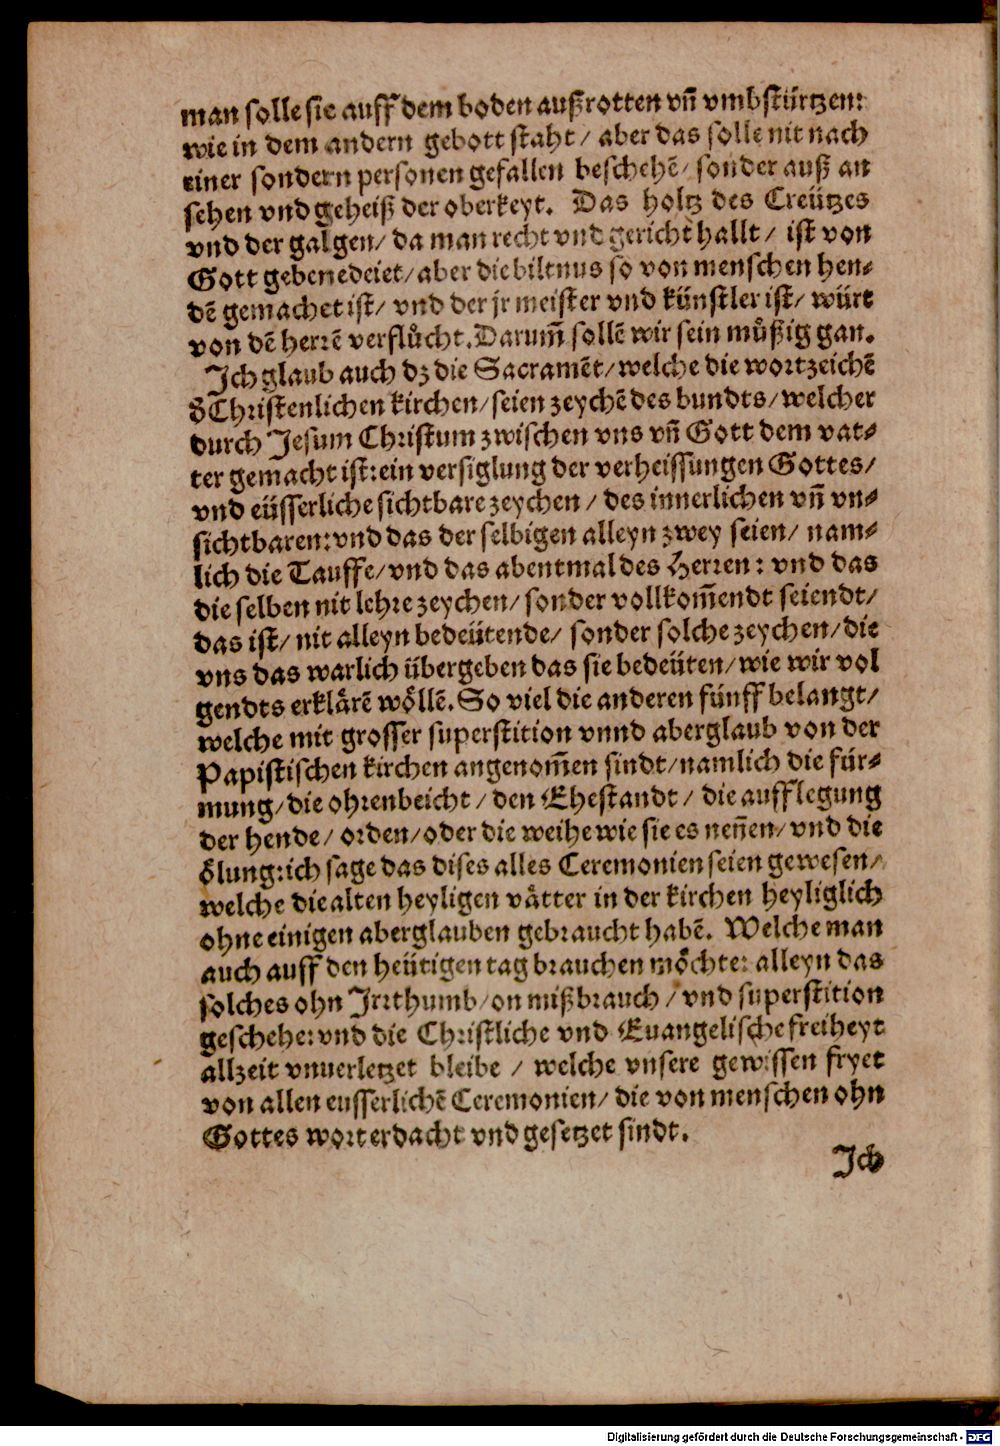 man solle sie auff dem boden außrotten vñ vmbstürtzen:
wie in dem andern gebott staht / aber das solle nit nach
einer sondern personen gefallen beschehẽ / sonder auß an
sehen vnd geheiß der oberkeyt. Das holtz des Creützes
vnd der galgen / da man recht vnd gericht hallt / ist von
Gott gebenedeiet / aber die biltnus so von menschen hen⸗
dẽ gemachet ist / vnd der jr meister vnd künstler ist / würt
von dẽ herrẽ verflůcht. Darum̃ sollẽ wir sein müßig gan.
Ich glaub auch dz die Sacramẽt / welche die wortzeichẽ
d̕ Christenlichen kirchen / seien zeychẽ des bundts / welcher
durch Jesum Christum zwischen vns vñ Gott dem vat⸗
ter gemacht ist: ein versiglung der verheissungen Gottes /
vnd eüsserliche sichtbare zeychen / des innerlichen vñ vn⸗
sichtbaren: vnd das der selbigen alleyn zwey seien / nam⸗
lich die Tauffe / vnd das abentmal des Herren: vnd das
die selben nit lehre zeychen / sonder vollkom̃endt seiendt /
das ist / nit alleyn bedeütende / sonder solche zeychen / die
vns das warlich übergeben das sie bedeüten / wie wir vol
gendts erklärẽ wöllẽ. So viel die anderen fünff belangt /
welche mit grosser superstition vnnd aberglaub von der
Papistischen kirchen angenom̃en sindt / namlich die für⸗
mung / die ohrenbeicht / den Ehestandt / die aufflegung
der hende / orden / oder die weihe wie sie es neñen / vnd die
ölung: ich sage das dises alles Ceremonien seien gewesen /
welche die alten heyligen vätter in der kirchen heyliglich
ohne einigen aberglauben gebraucht habẽ. Welche man
auch auff den heütigen tag brauchen möchte: alleyn das
solches ohn Irrthumb / on mißbrauch / vnd superstition
geschehe: vnd die Christliche vnd Euangelische freiheyt
allzeit vnuerletzet bleibe / welche vnsere gewissen fryet
von allen eusserlichẽ Ceremonien / die von menschen ohn
Gottes wort erdacht vnd gesetzet sindt.
Ich
Digitalisierung gefördert durch die Deutsche Forschungsgemeinschaft - DFG